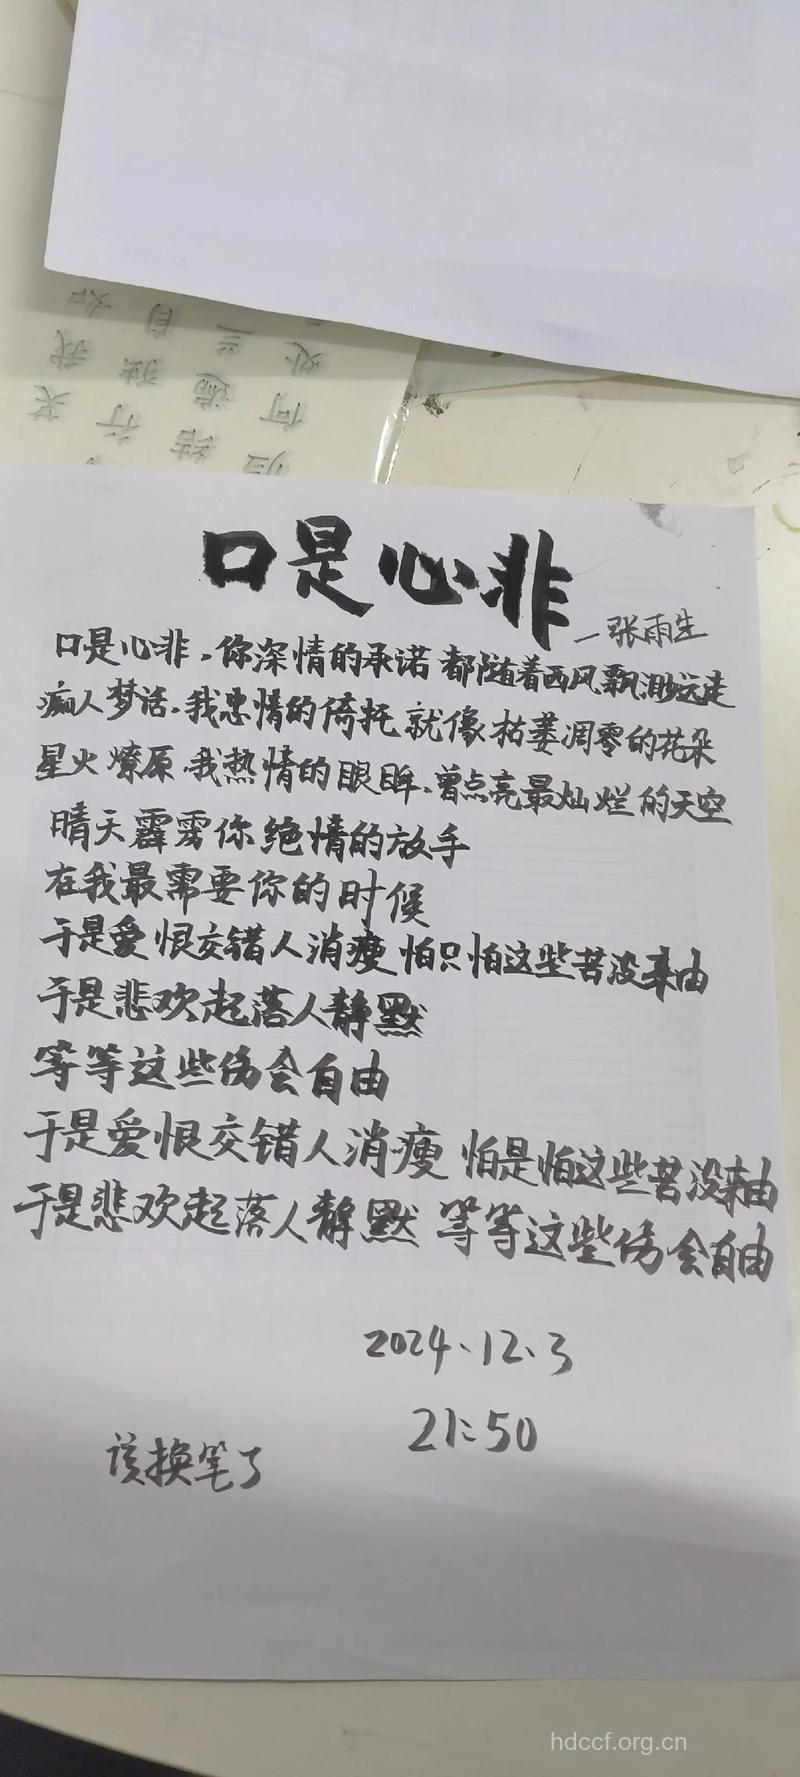 我 如
芙 行 独 自
结 遍 兰
归 何 处
口是心非
—张雨生
口是心非,你深情的承诺 都随着西风飘渺远走
痴人梦话.我思情的倚托 就像枯萎凋零的花朵
星火燎原.我热情的眼眸,曾点亮最灿烂的天空
晴天霹雳你绝情的放手
在我最需要你的时候
于是爱恨交错人消瘦 怕只怕这些苦没来由
于是悲欢起落人静默
等等这些伤会自由
于是爱恨交错人消瘦 怕是怕这些苦没来由
于是悲欢起落人静默 等等这些伤会自由
2024.12.3
21:50
该换笔了
hdccf.org.cn